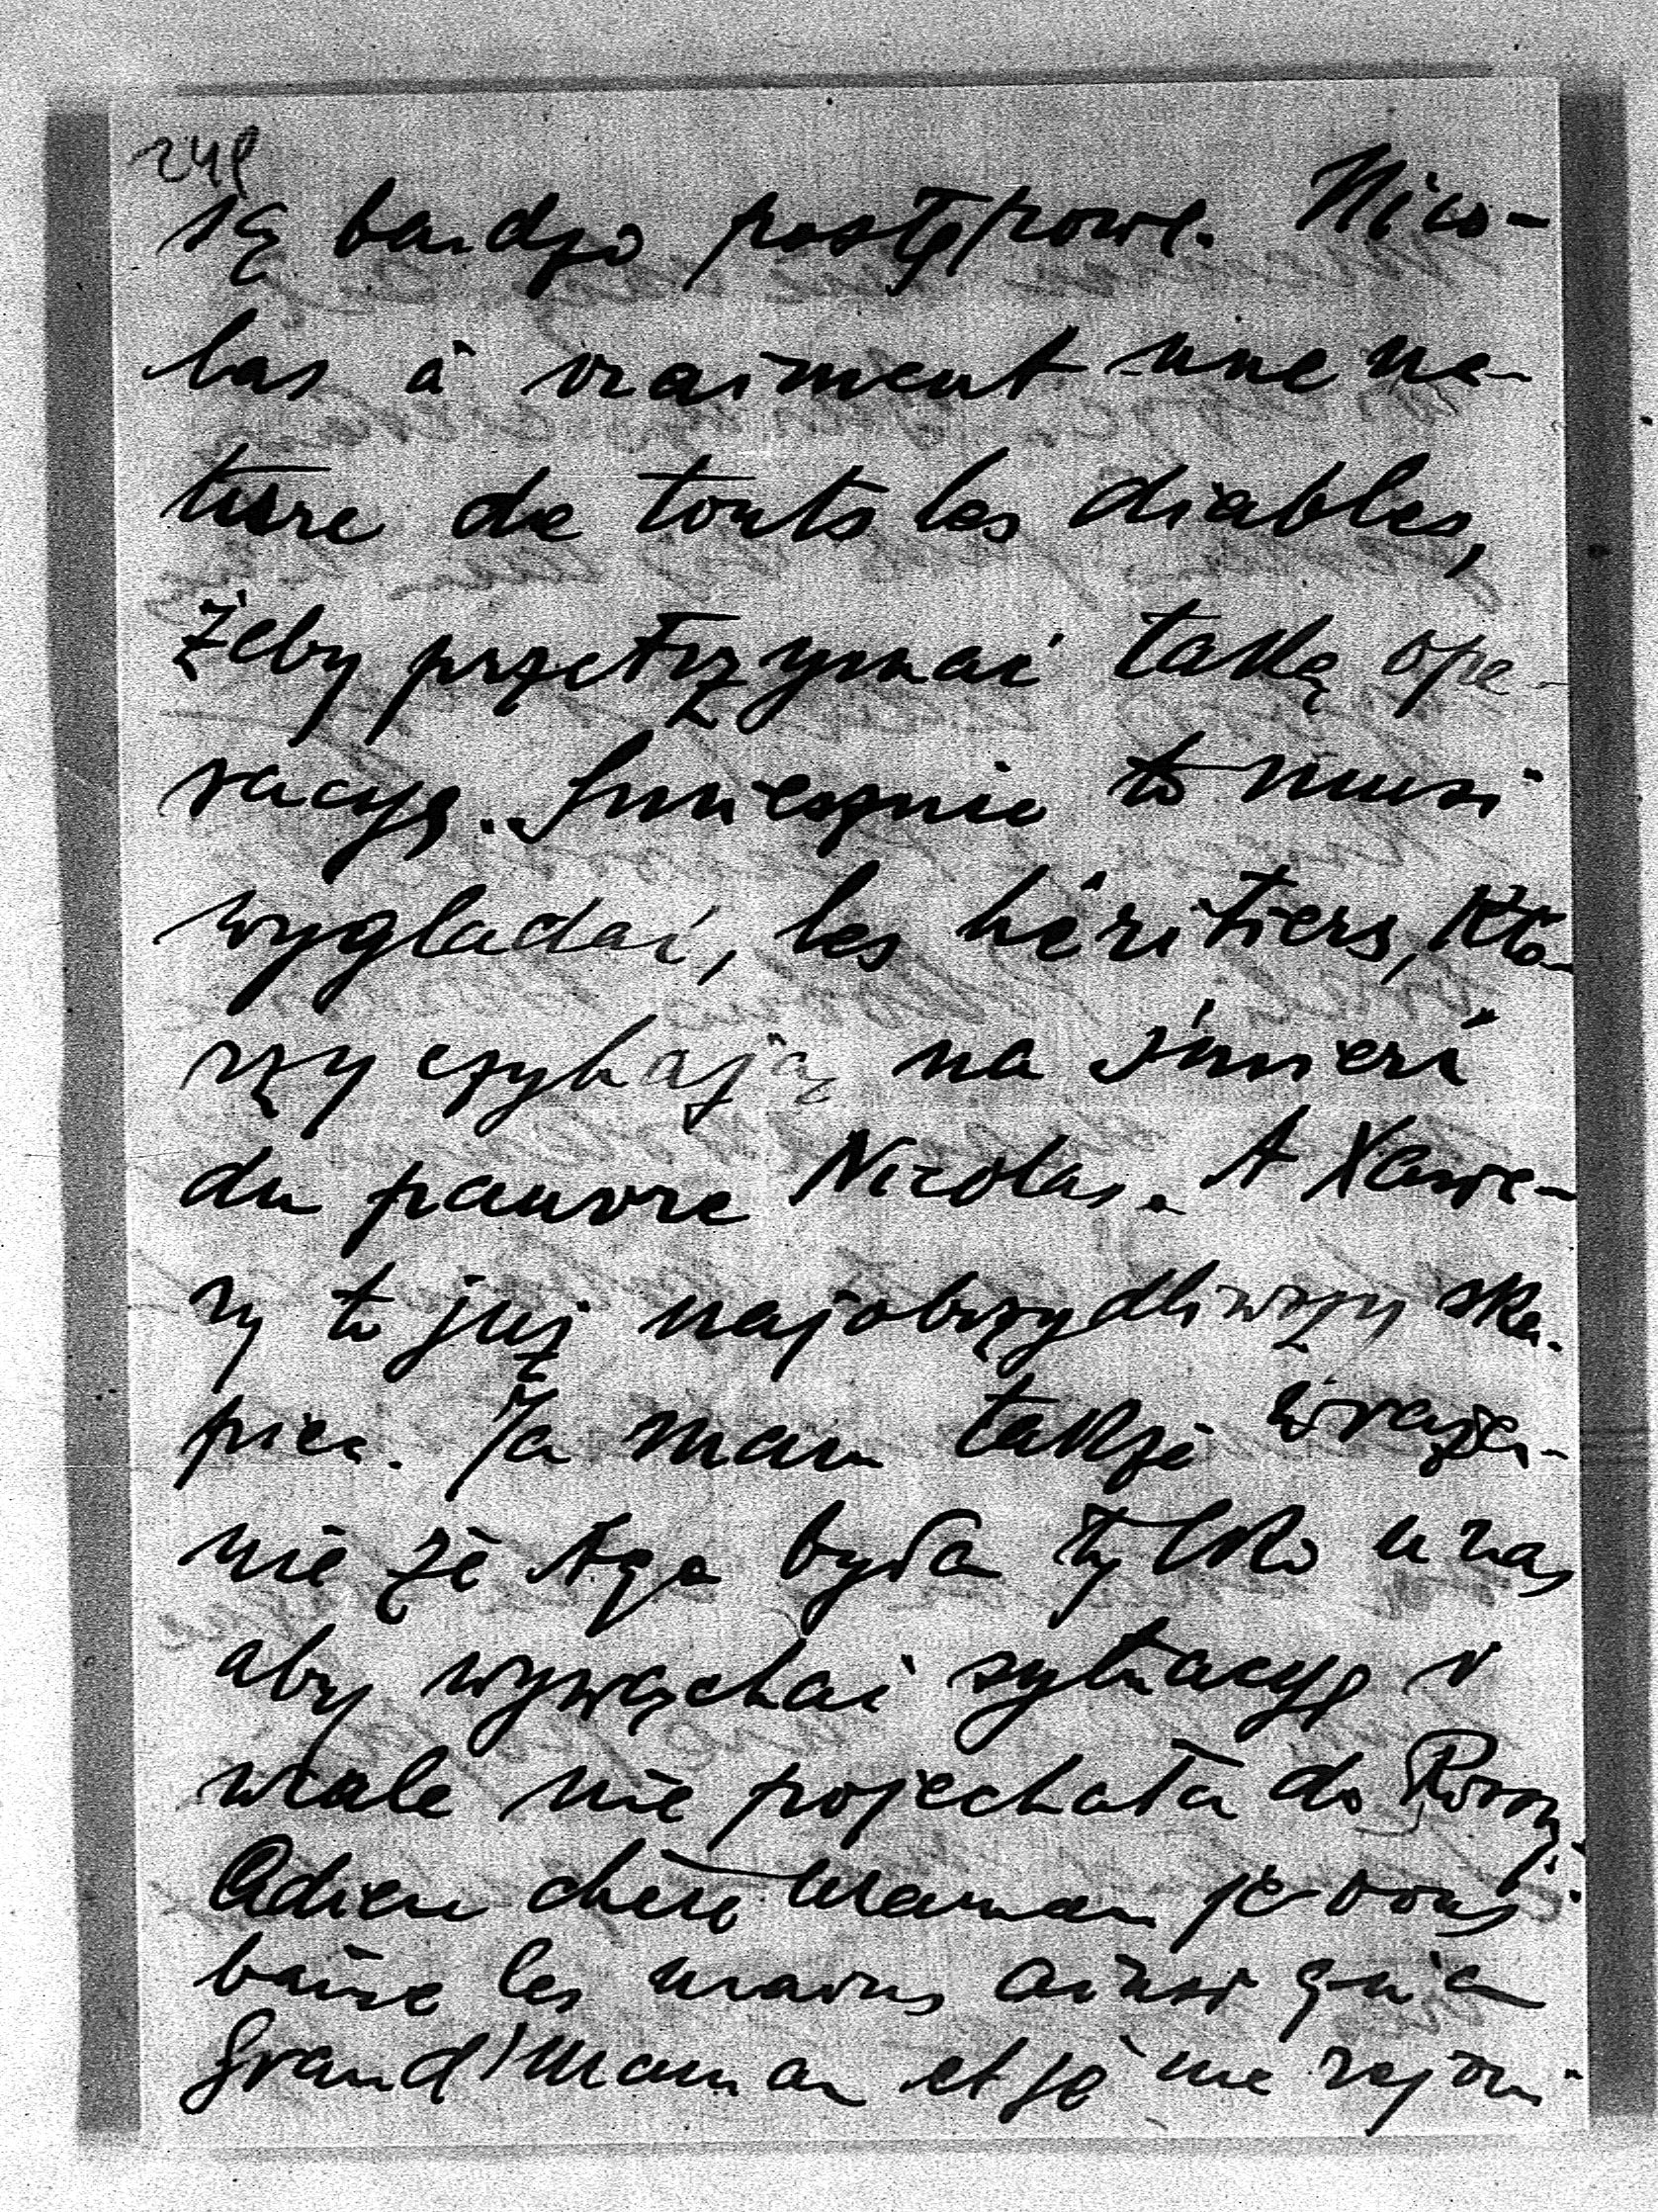 248
są bardzo postępowe. Nico-
las à vraiment une na-
ture de touts les diables,
żeby przetrzymać taką ope-
racyę. Śmiesznie to musi
wyglądać, les héritiers, któ-
rzy czyhają na śmierć
du pauvre Nicolas. A Xawe-
ry to już najobrzydliwszy ską-
piec. Ja mam także wraże-
nie że Aga była tylko u nas
aby wywąchać sytuacyę i
wcale nie pojechała do
Adieu chère Maman je vous
baise les mains ainsi qu'à
Grand'Maman et je me rejoui